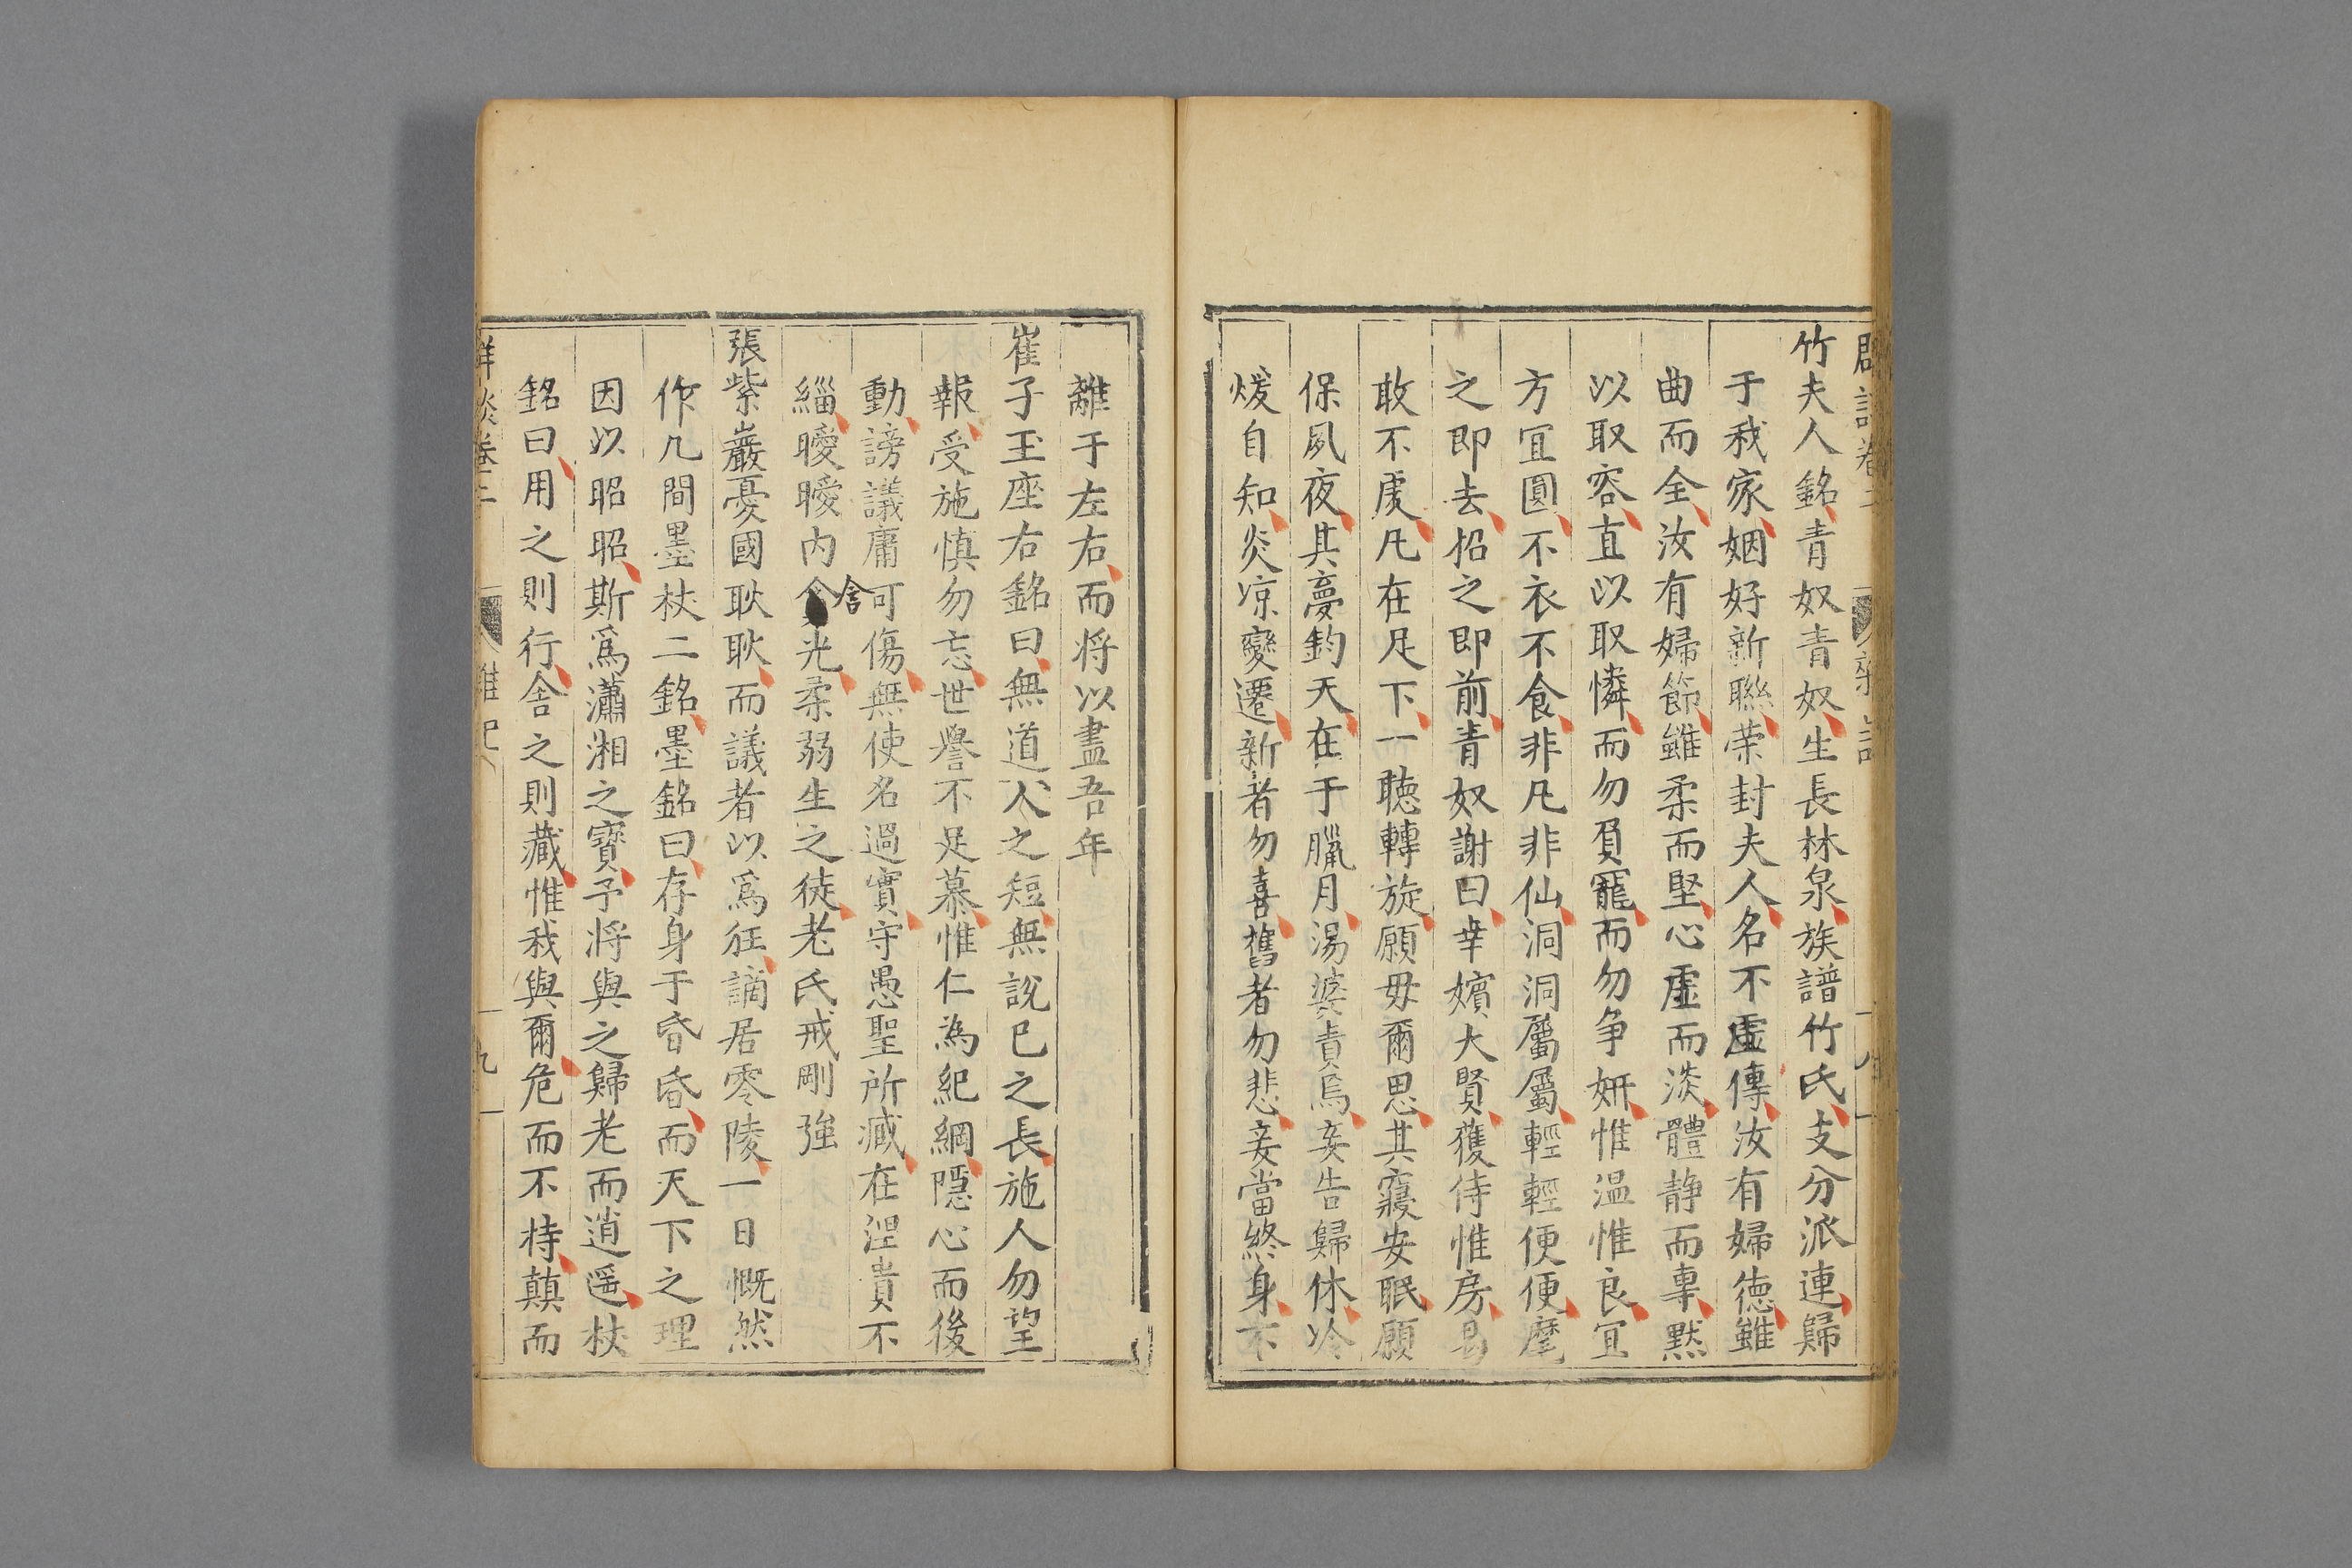 竹夫人銘青奴青奴生長林泉族譜竹氏支分派連歸
于我家姻好新聯荣封夫人名不虚傳汝有婦德雖
曲而全汝有婦節雖柔而堅心虚而淡體静而專黙
以取容直以取憐而勿負寵而勿争妍惟温惟良宜
方宜圓不衣不食非凡非仙洞洞屬屬輕輕便便麾
之即去招之即前青奴謝曰幸嬪大賢獲侍惟房曷
敢不虔凡在足下一聴轉旋願毋爾思其寢安眠願
保夙夜其夢鈞天在于臘月湯婆責焉妾告歸休冷
煖自知炎凉變遷新者勿喜舊者勿悲妾當終身不
離于左右而将以盡吾年
崔子玉座右銘曰無道人之短無説已之長施人勿望
報受施慎勿忘世譽不足慕惟仁為紀綱隱心而後
動謗議庸可傷無使名過實守愚聖所臧在涅貴不
緇曖曖内含光柔弱生之徒老氏戒剛強
張紫巖憂國耿耿而議者以爲狂謫居零陵一日慨然
作几間墨杖二銘墨銘曰存身于昏昏而天下之理
因以昭昭斯爲瀟湘之寳予将與之歸老而逍遥杖
銘曰用之則行舍之則藏惟我與爾危而不持顛而
卷二 雜記 九